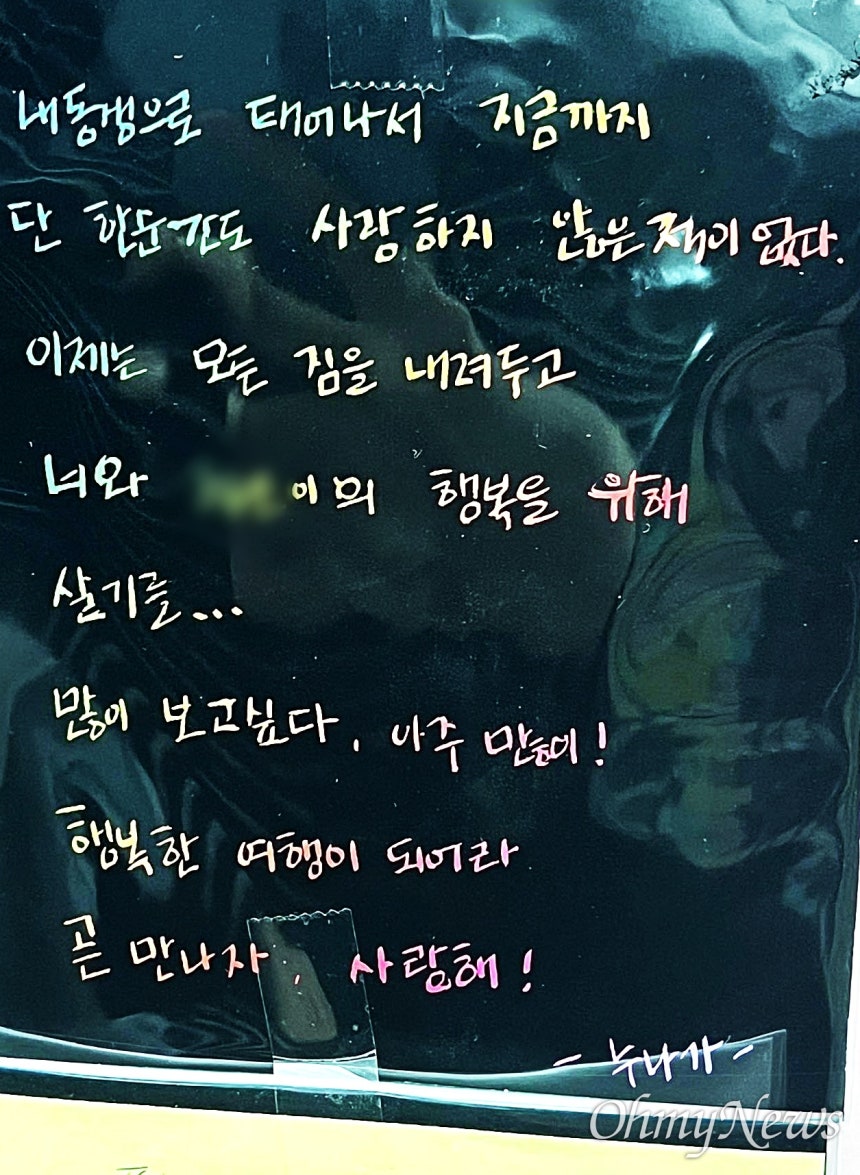 내동생으로 태어나서 지금까지
단 한순간도 사랑하지 않은적이 없다.
이제는 모든 짐을 내려두고
너와 이의 행복을 위해
살기를...
많이 보고싶다, 아주 많이!
행복한 여행이 되어라
곧 만나자, 사랑해!
- 누나가 -
OhmyNews